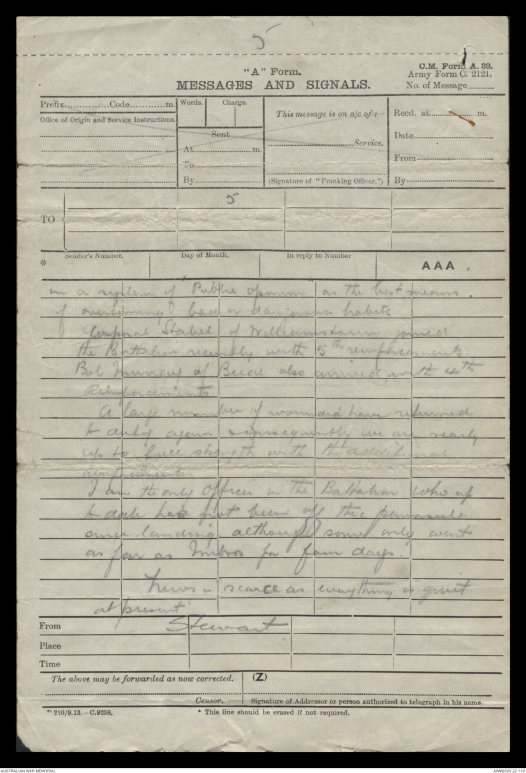 5
"A" Form.
MESSAGES AND SIGNALS.
C.M. Form A. 39.
Army Form C. 2121.
No. of Message
Prefix Code m.
Words. Charge.
This message is on a/c of:
Recd. at m.
Office of Origin and Service Instructions.
Sent
Date
At m.
Service.
To
From
By
(Signature of "Franking Officer.")
By
5
TO
* Sender's Number. Day of Month. In reply to Number
AAA
on a system of "Public opinion" as the best means
of overcoming bad or dangerous habits
Corporal of Williamstown joined
the Battalion recently with 5th reinforcements
Bob of also arrived with 4th
Reinforcements
A large number of wounded have returned
to duty again & consequently we are nearly
up to full strength with the additional
reinforcements
I am the only Officer in the Battalion who up
to date has not been off the peninsula
since landing although some only went
as far as Imbros for four days.
News is scarce as everything is quiet
at present
From Stewart
Place
Time
The above may be forwarded as now corrected. (Z)
Censor. Signature of Addressor or person authorized to telegraph in his name
210/9.13.–C.9258. * This line should be erased if not required.
AUSTRALIAN WAR MEMORIAL